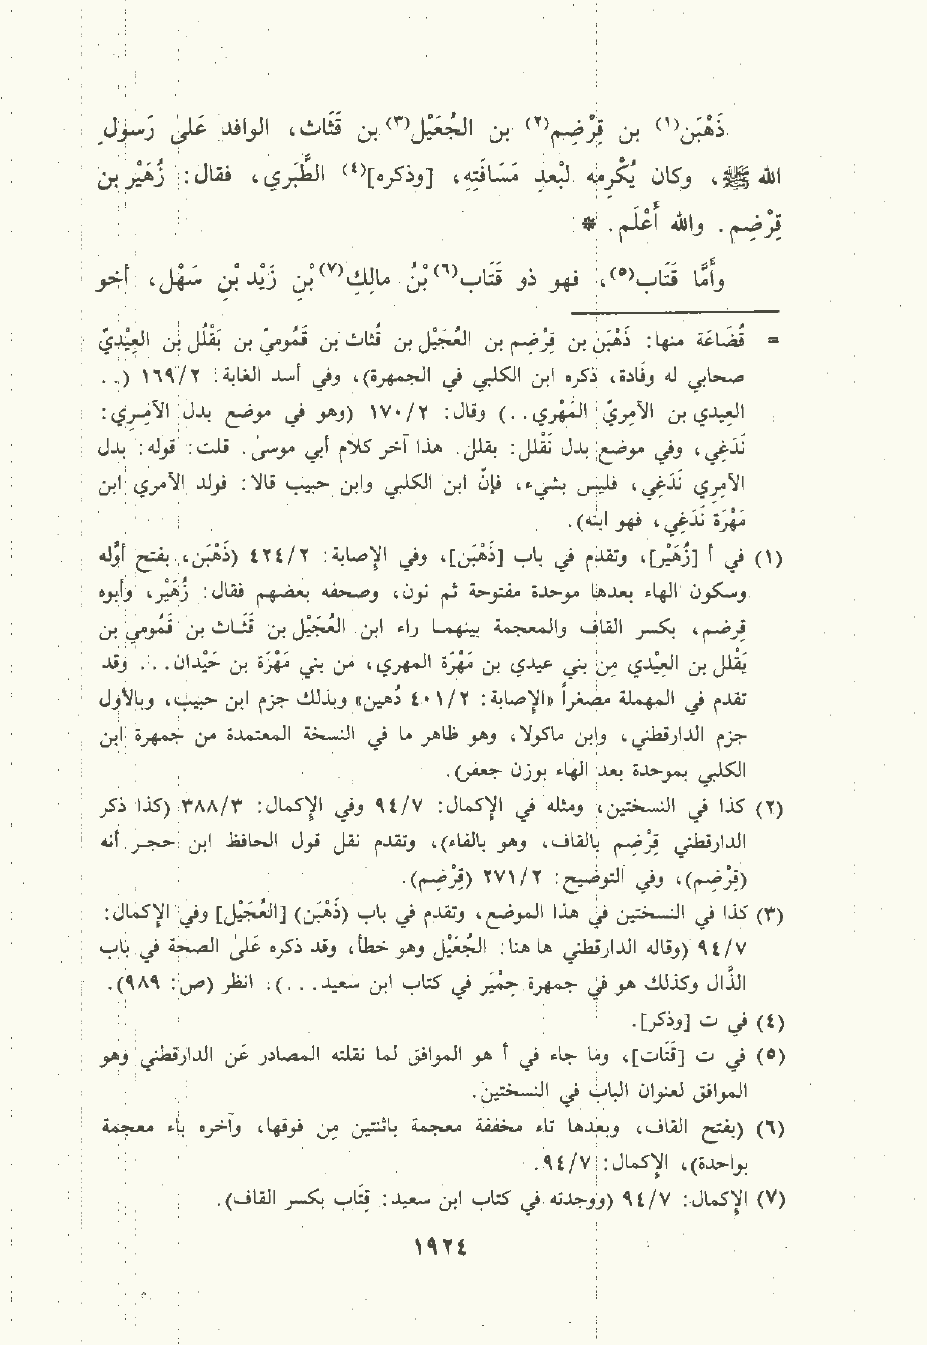 ذَهْبَن(١) بن قِرْضِم(٢) بن الجُعَيْل(٣) بن قَثَاث، الوافد عَلىٰ رَسولِ
الله ﷺ، وكان يُكْرِمه لبُعدِ مَسَافَتِهِ، [وذكره](٤) الطَّبَري، فقال: زُهَيْر بن
قِرْضِم. والله أَعْلَم. *
وأمَّا قَتَاب(٥)، فهو ذو قَتَاب(٦) بْنُ مالِكِ(٧) بْنِ زَيْد بْن سَهْل، أخو
= قُضَاعَة منها: ذَهْبَن بن قِرْضِم بن العُجَيْل بن قُثاث بن قَمُوميّ بن بَقْلُل بن العِيْدِيّ
صحابي له وفادة، ذكره ابن الكلبي في الجمهرة)، وفي أسد الغابة: ١٦٩/٢ (...
العيدي بن الآمِريّ المَهْري..) وقال: ١٧٠/٢ (وهو في موضع بدل الآمِري:
نَدَغِي، وفي موضع بدل نَقْلل: بقلل. هذا آخر كلام أبي موسىٰ. قلت: قوله: بدل
الآمري نَدَغِي، فليس بشيء، فإنّ ابن الكلبي وابن حبيب قالا: فولد الآمري ابن
مَهْرَة نَدَغِي، فهو ابنه).
(١) في أ [زُهَيْر]، وتقدم في باب [ذَهْبَن]، وفي الإصابة: ٤٢٤/٢ (ذَهْبَن، بفتح أوَّله
وسكون الهاء بعدها موحدة مفتوحة ثم نون، وصحفه بعضهم فقال: زُهَيْر، وأبوه
قِرضم، بكسر القاف والمعجمة بينهما راء ابن العُجَيْل بن قَثَاث بن قَمُومي بن
يَقْلل بن العِيْدي مِن بني عيدي بن مَهْرَة المهري، من بني مَهْرَة بن حَيْدان... وقد
تقدم في المهملة مصغراً «الإصابة: ٤٠١/٢ دُهين» وبذلك جزم ابن حبيب، وبالأول
جزم الدارقطني، وابن ماكولا، وهو ظاهر ما في النسخة المعتمدة من جمهرة ابن
الكلبي بموحدة بعد الهاء بوزن جعفر).
(٢) كذا في النسختين، ومثله في الإكمال: ٩٤/٧ وفي الإكمال: ٣٨٨/٣ (كذا ذكر
الدارقطني قِرْضِم بالقاف، وهو بالفاء)، وتقدم نقل قول الحافظ ابن حجر أنه
(قِرْضِم)، وفي التوضيح: ٢٧١/٢ (قِرْضِم).
(٣) كذا في النسختين في هذا الموضع، وتقدم في باب (ذَهْبَن) [العُجَيْل] وفي الإكمال:
٩٤/٧ (وقاله الدارقطني ها هنا: الجُعَيْل وهو خطأ، وقد ذكره عَلىٰ الصحة في باب
الذَّال وكذلك هو في جمهرة حِمْيَر في كتاب ابن سعيد...). انظر (ص: ٩٨٩).
(٤) في ت [وذكر].
(٥) في ت [قَتَات]، وما جاء في أ هو الموافق لما نقلته المصادر عَن الدارقطني وهو
الموافق لعنوان الباب في النسختين.
(٦) (بفتح القاف، وبعدها تاء مخففة معجمة باثنتين مِن فوقها، وآخره باء معجمة
بواحدة)، الإكمال: ٩٤/٧.
(٧) الإكمال: ٩٤/٧ (ووجدته في كتاب ابن سعيد: قِتَاب بكسر القاف).
١٩٢٤